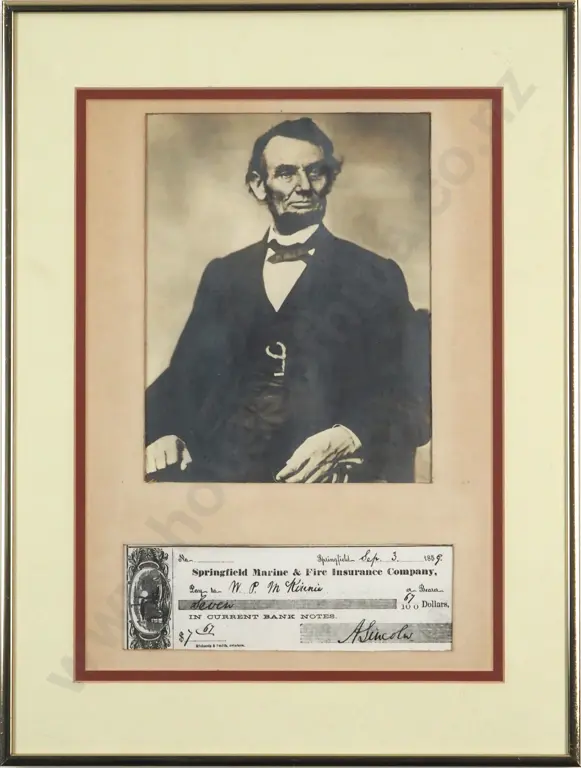 No.
Springfield Sep. 3. 1859.
Springfield Marine & Fire Insurance Company,
Pay to W. P. McKinnie or Bearer
Seven 67/100 Dollars,
IN CURRENT BANK NOTES.
$7 67
A. Lincoln